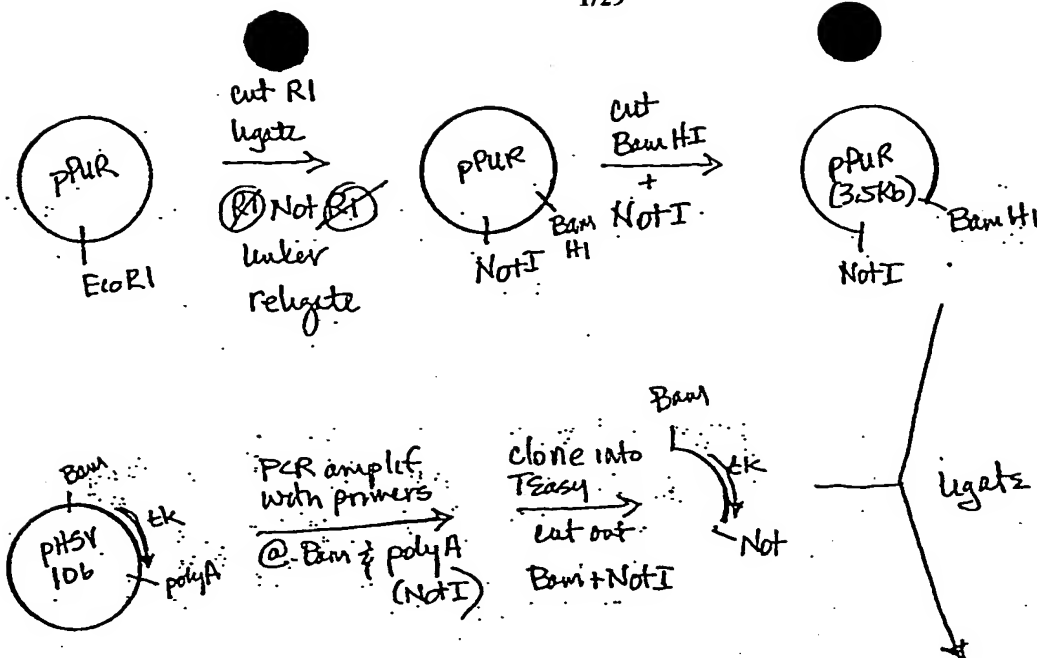 1/25
cut RI
ligate
pPUR
(RI) Not (RI)
linker
religate
EcoRI
pPUR
Bam
HI
NotI
cut
Bam HI
+
Not I
pPUR
(3.5Kb)
Bam HI
NotI
Bam
tk
pHSV
106
polyA
PCR amplif.
with primers
@ Bam & polyA
(NotI)
clone into
TEasy
cut out
Bam + NotI
Bam
tk
Not
ligate